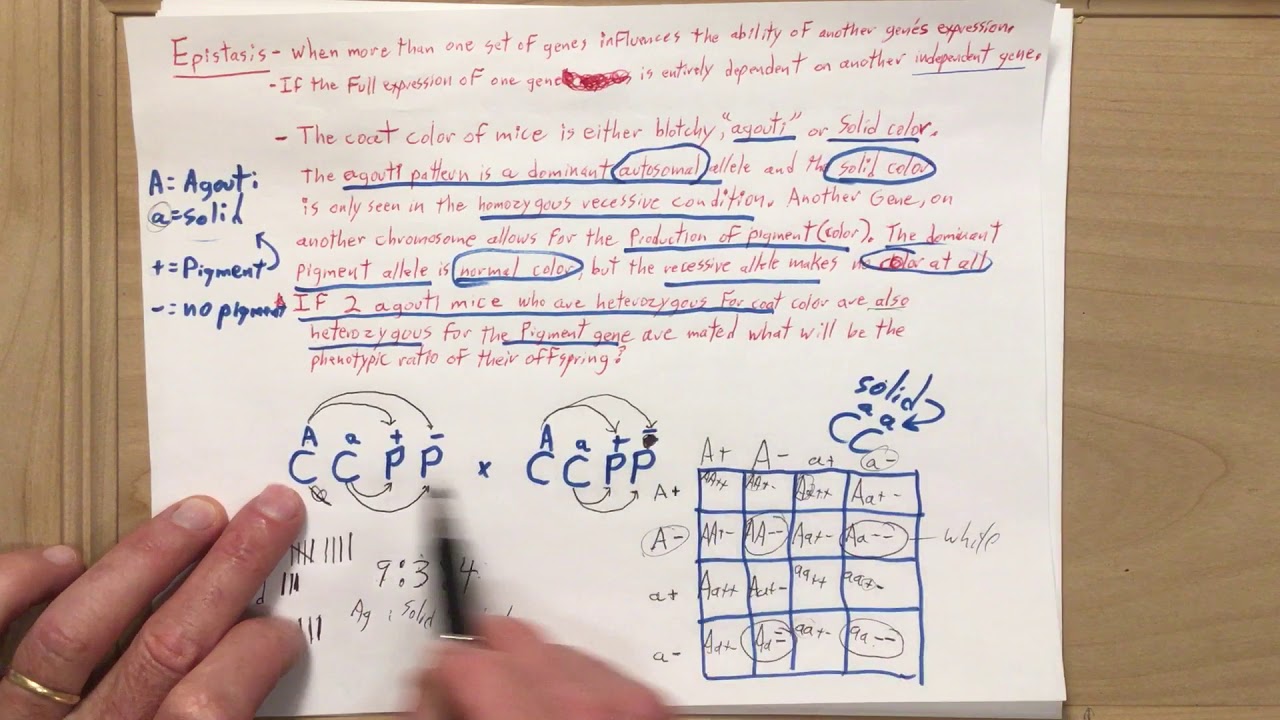 Epistasis - When more than one set of genes influences the ability of another gene's expression.
- If the Full expression of one gene is entirely dependent on another independent gene.
- The coat color of mice is either blotchy, "agouti" or Solid color.
The agouti pattern is a dominant autosomal allele and the solid color
is only seen in the homozygous recessive condition. Another Gene, on
another chromosome allows for the Production of pigment (color). The dominant
pigment allele is normal color, but the recessive allele makes no color at all
If 2 agouti mice who are heterozygous For coat color are also
heterozygous for the Pigment gene are mated what will be the
phenotypic ratio of their offspring?
A = Agouti
a = solid
+ = Pigment
- = no pigment
solid
a a
C C
A a + - A a + -
C C P P x C C P P
A+ A- a+ a-
A+ AA++ AA+- Aa++ Aa+-
A- AA+- AA-- Aa+- Aa-- - white
a+ Aa++ Aa+- aa++ aa+-
a- Aa+- Aa-- aa+- aa--
9:3 4
Ag : Solid